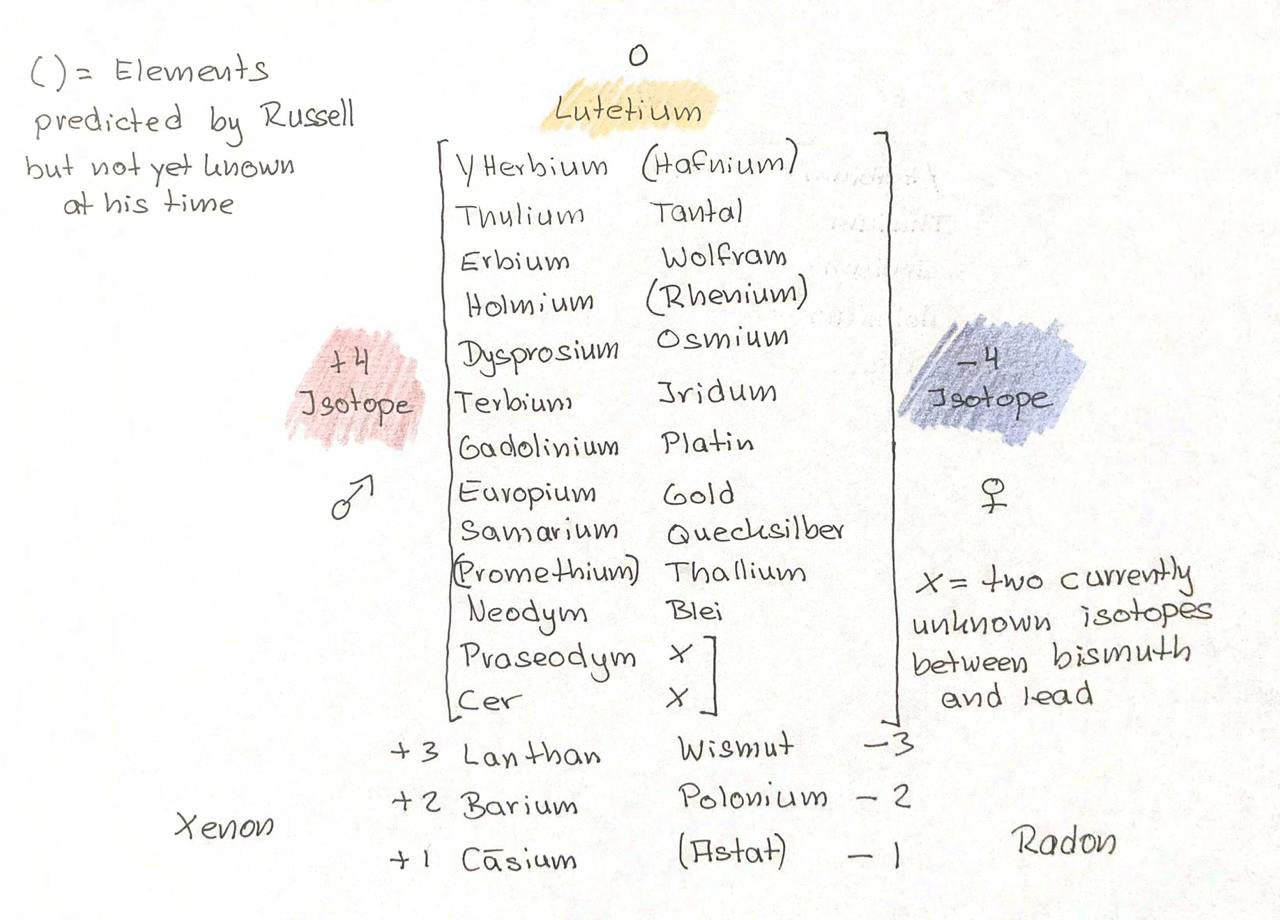 0
( ) = Elements
predicted by Russell
but not yet known
at his time
Lutetium
YHerbium (Hafnium)
Thulium Tantal
Erbium Wolfram
Holmium (Rhenium)
Dysprosium Osmium
+4
Isotope
Terbium Iridum
-4
Isotope
Gadolinium Platin
♂ Europium Gold ♀
Samarium Quecksilber
(Promethium) Thallium
Neodym Blei
Praseodym X
Cer X
X = two currently
unknown isotopes
between bismuth
and lead
+3 Lanthan Wismut -3
+2 Barium Polonium -2
Xenon
+1 Cāsium (Astat) -1
Radon